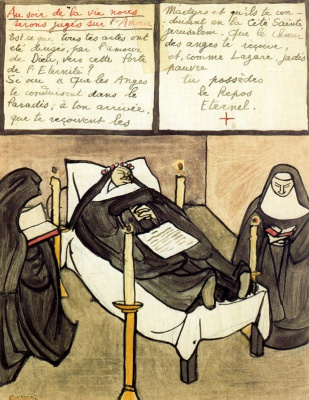 Au soir de la vie nous
serons jugés sur l'Amour
Est ce que tous tes actes ont
été dirigés par l'amour
de Dieu, vers cette Porte
de l'Eternité ?
Si oui & Que les Anges
te conduisent dans le
Paradis; à ton arrivée,
que te reçouvent les
Martyrs et qu'ils te con-
duisent en la Cité Sainte
Jerusalem. Que le Choeur
des anges te reçoive,
et, comme Lazare, jadis
pauvre
tu possèdes
le Repos
Eternel.